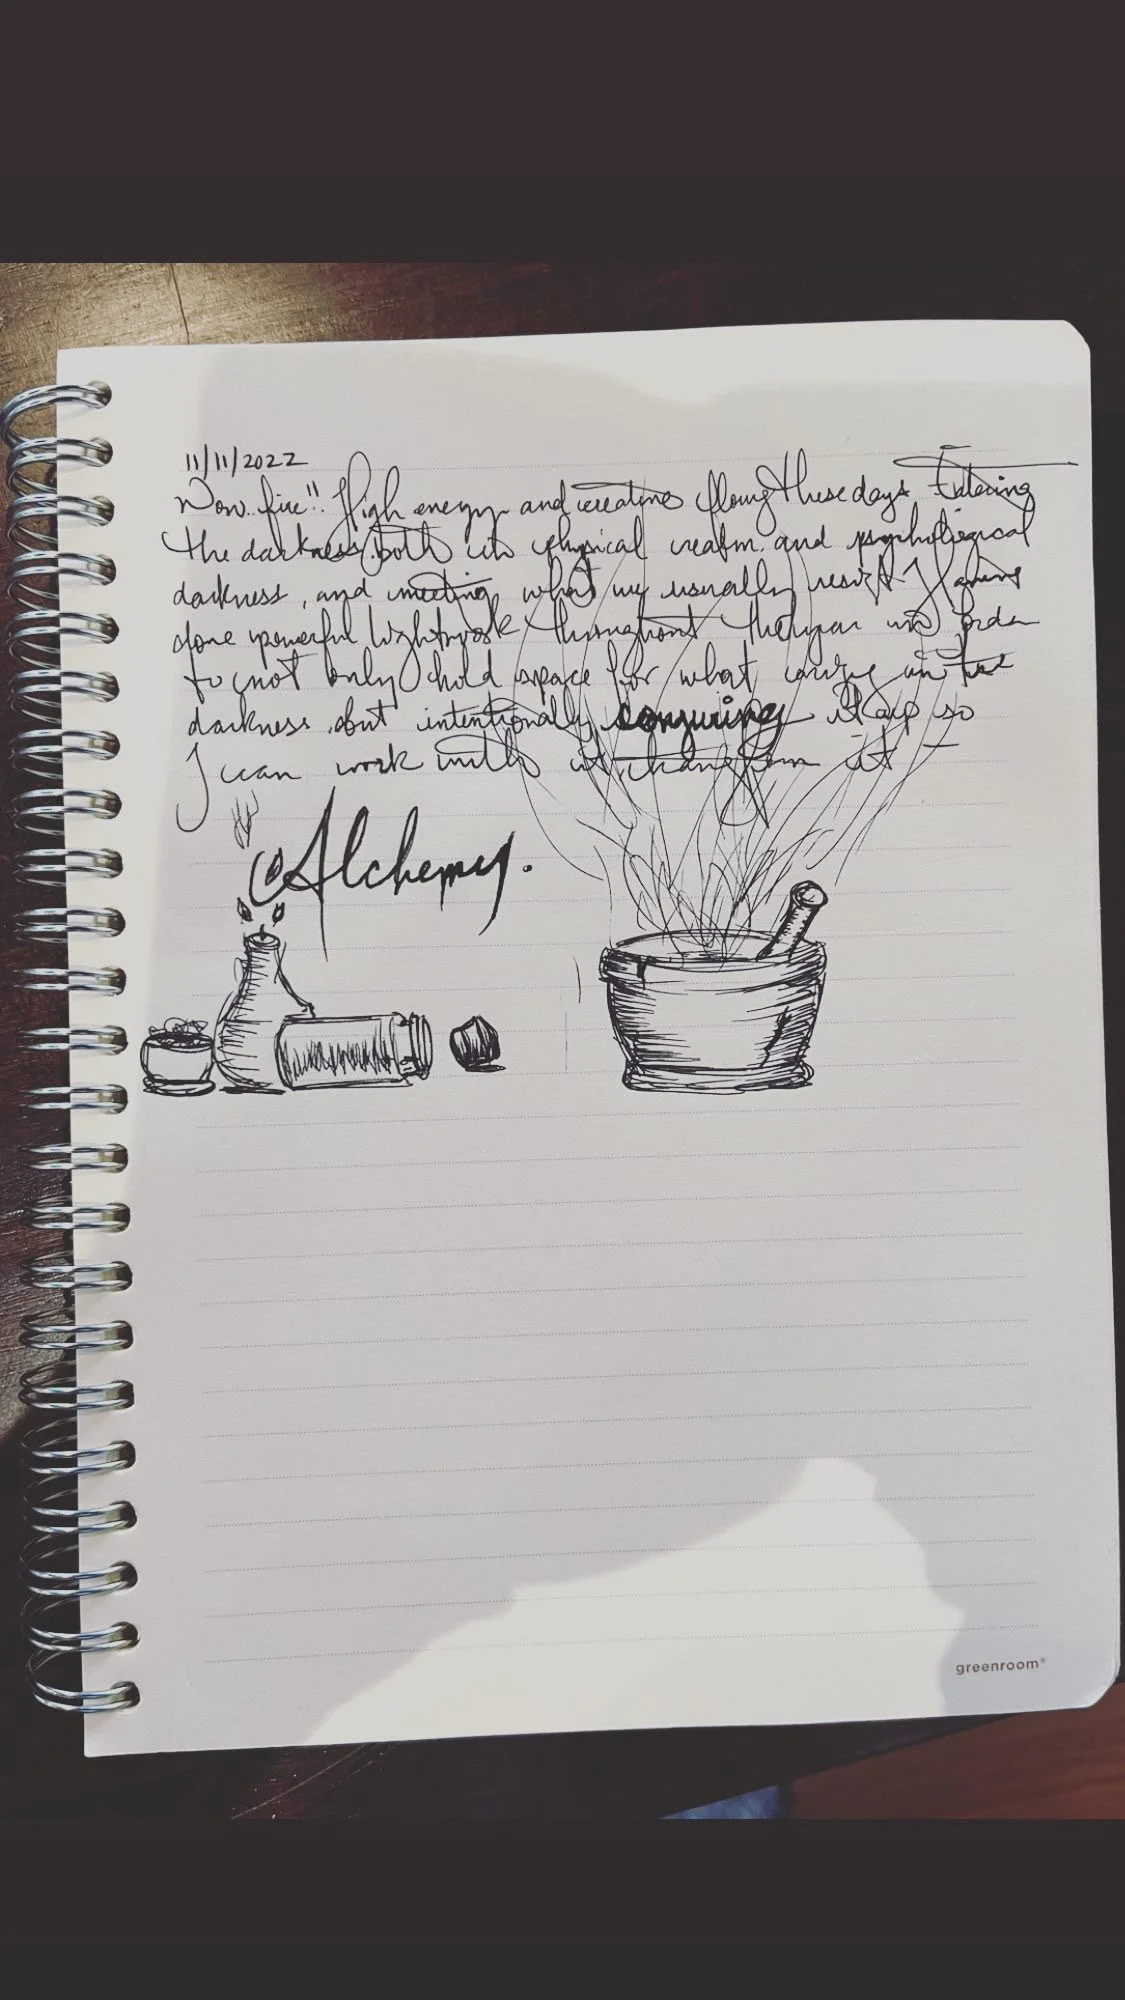 11/11/2022
Wow.. fire!! High energy and creative flowing these days. Entering
the darkness both in physical realm and psychological
darkness, and meeting what we usually resist. Having
done powerful lightwork throughout the year in order
to not only hold space for what in the
darkness but intentionally conjuring it up so
I can work with it, it
Alchemy.
greenroom®